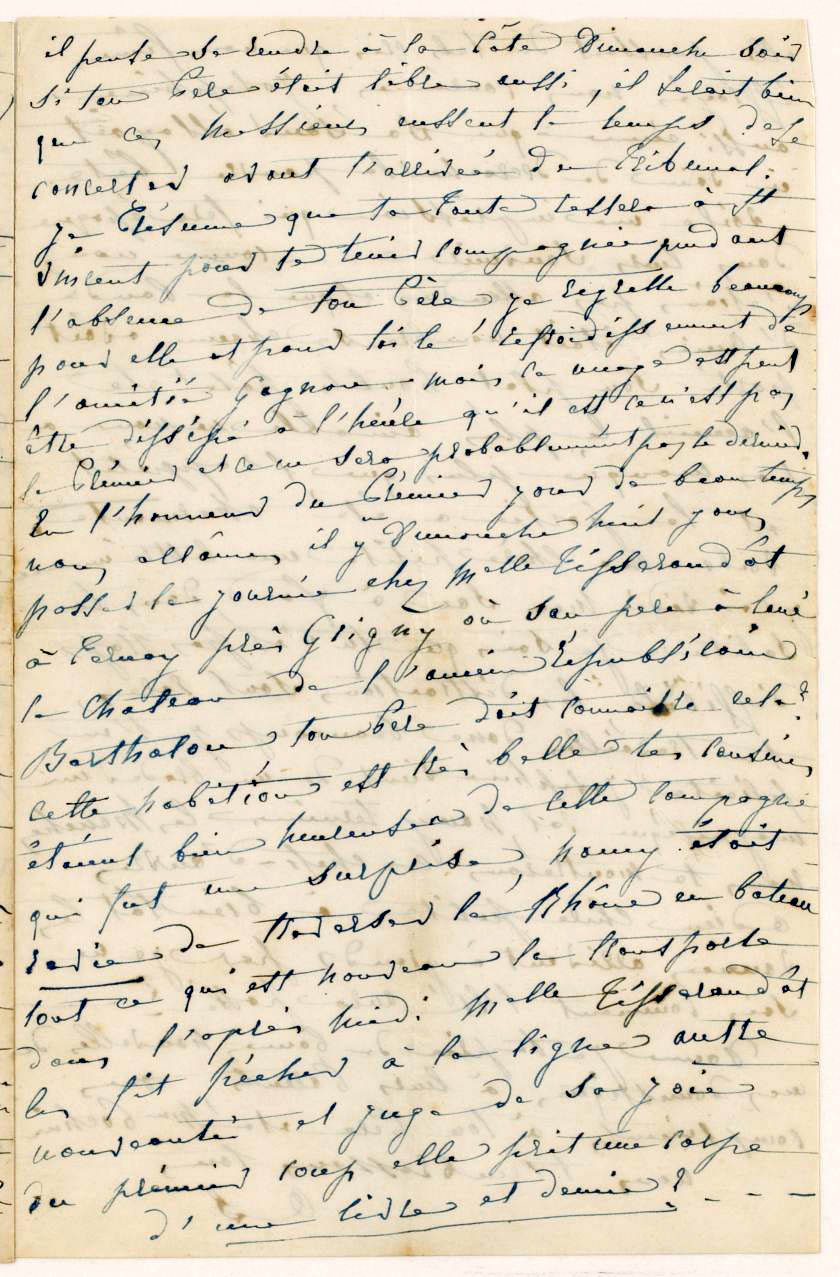 il pense se rendre à la Côte Dimanche soir
si ton Père était libre aussi, il serait bien
que ces Messieurs eussent le temps de se
concerter avant l'arrivée du Tribunal.
je Présume que ta Tante restera à St
Vincent pour te tenir compagnie pendant
l'absence de ton Père je regrette beaucoup
pour elle et pour toi le refroidissement de
l'amitié Gagnon - mais ce nuage est peut
être dissipé à l'heure qu'il est ce n'est pas
le Prémier et ce ne sera probablement pas le dernier.
En l'honneur du Prémier jour de beau temps
nous allâmes il y a Dimanche huit jours
passer la journée chez Melle Tisserandôt
à Ternay près Grigny où son père à loué
le château de l'ancien Républicain
Bartholon ton Père doit connaître cela?
cette habitation est très belle tes cousines
étaient bien heureuses de cette campagne
qui fut une surprise, nany était
ravie de traverser le Rhône en bateau
tout ce qui est nouveau la transporte
dans l'après midi Melle Tisserandôt
les fit pêcher à la ligne autre
nouveauté et juge de sa joie
du prémier coup elle prit une carpe
d'une livre et demie? - - -